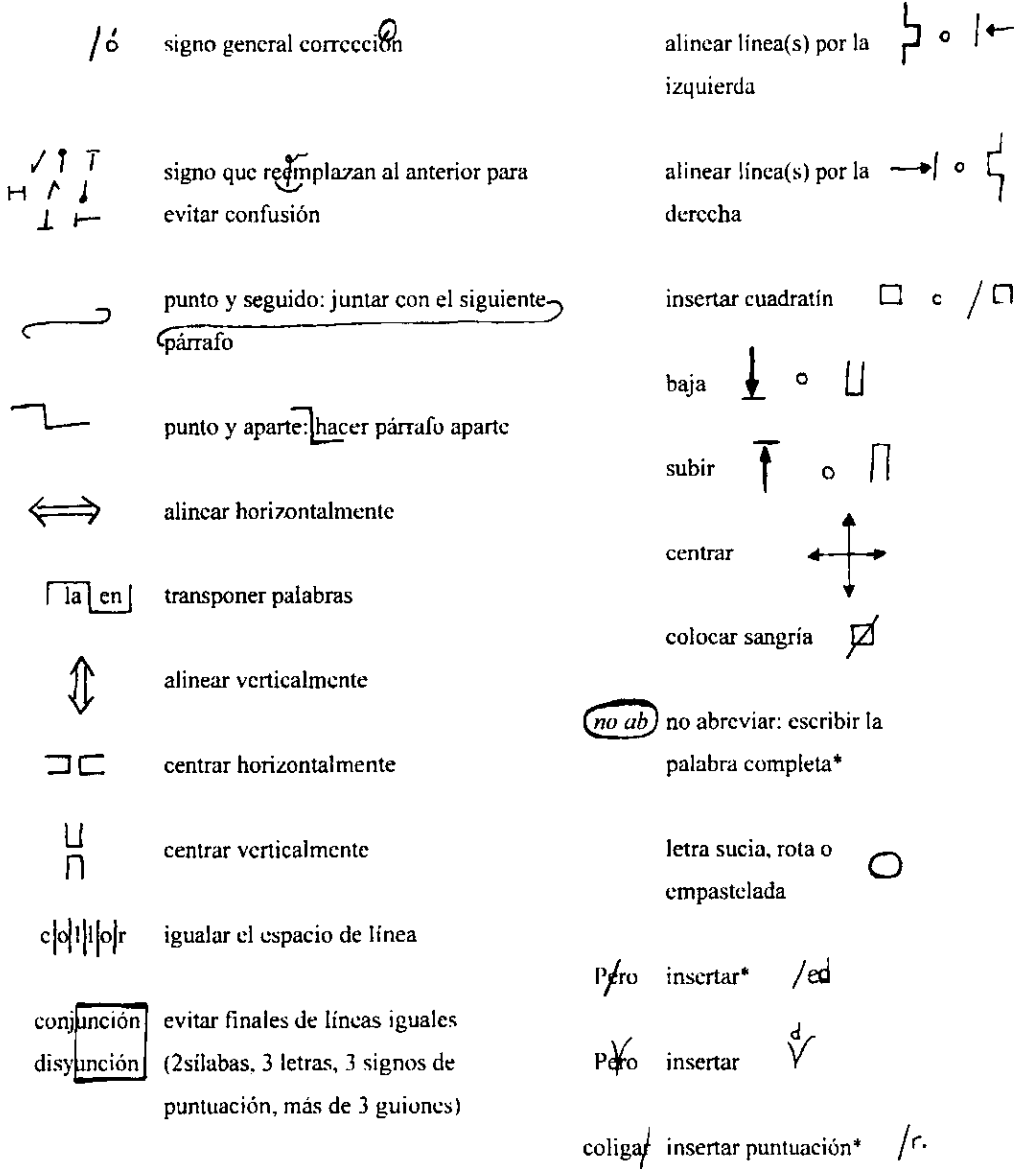 /ó signo general corrección
signo que reemplazan al anterior para
evitar confusión
punto y seguido: juntar con el siguiente
párrafo
punto y aparte: hacer párrafo aparte
alinear horizontalmente
la en transponer palabras
alinear verticalmente
centrar horizontalmente
centrar verticalmente
c|o|l|l|o|r igualar el espacio de línea
conjunción evitar finales de líneas iguales
disyunción (2sílabas, 3 letras, 3 signos de
puntuación, más de 3 guiones)
alinear línea(s) por la o
izquierda
alinear línea(s) por la o
derecha
insertar cuadratín o /
baja o
subir o
centrar
colocar sangría
no ab no abreviar: escribir la
palabra completa*
letra sucia, rota o
empastelada
Pero insertar* /ed
Pero insertar d
coligar insertar puntuación* /r.